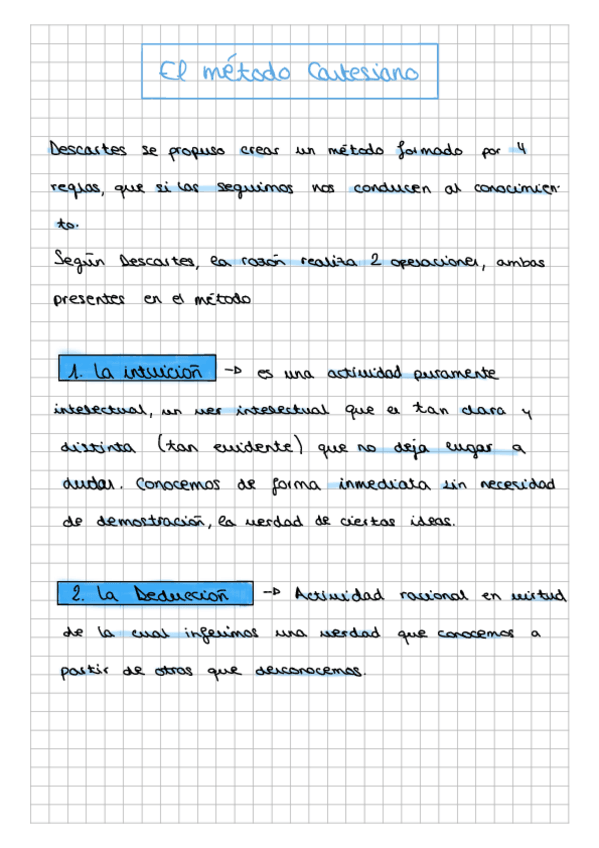 El método Cartesiano
Descartes se propuso crear un método formado por 4
reglas, que si las seguimos nos conducen al conocimien-
to.
Según Descartes, la razón realiza 2 operaciones, ambas
presentes en el método
1. La intuición -> es una actividad puramente
intelectual, un ver intelectual que es tan clara y
distinta (tan evidente) que no deja lugar a
dudar. Conocemos de forma inmediata sin necesidad
de demostración, la verdad de ciertas ideas.
2. La Deducción -> Actividad racional en virtud
de la cual inferimos una verdad que conocemos a
partir de otros que desconocemos.